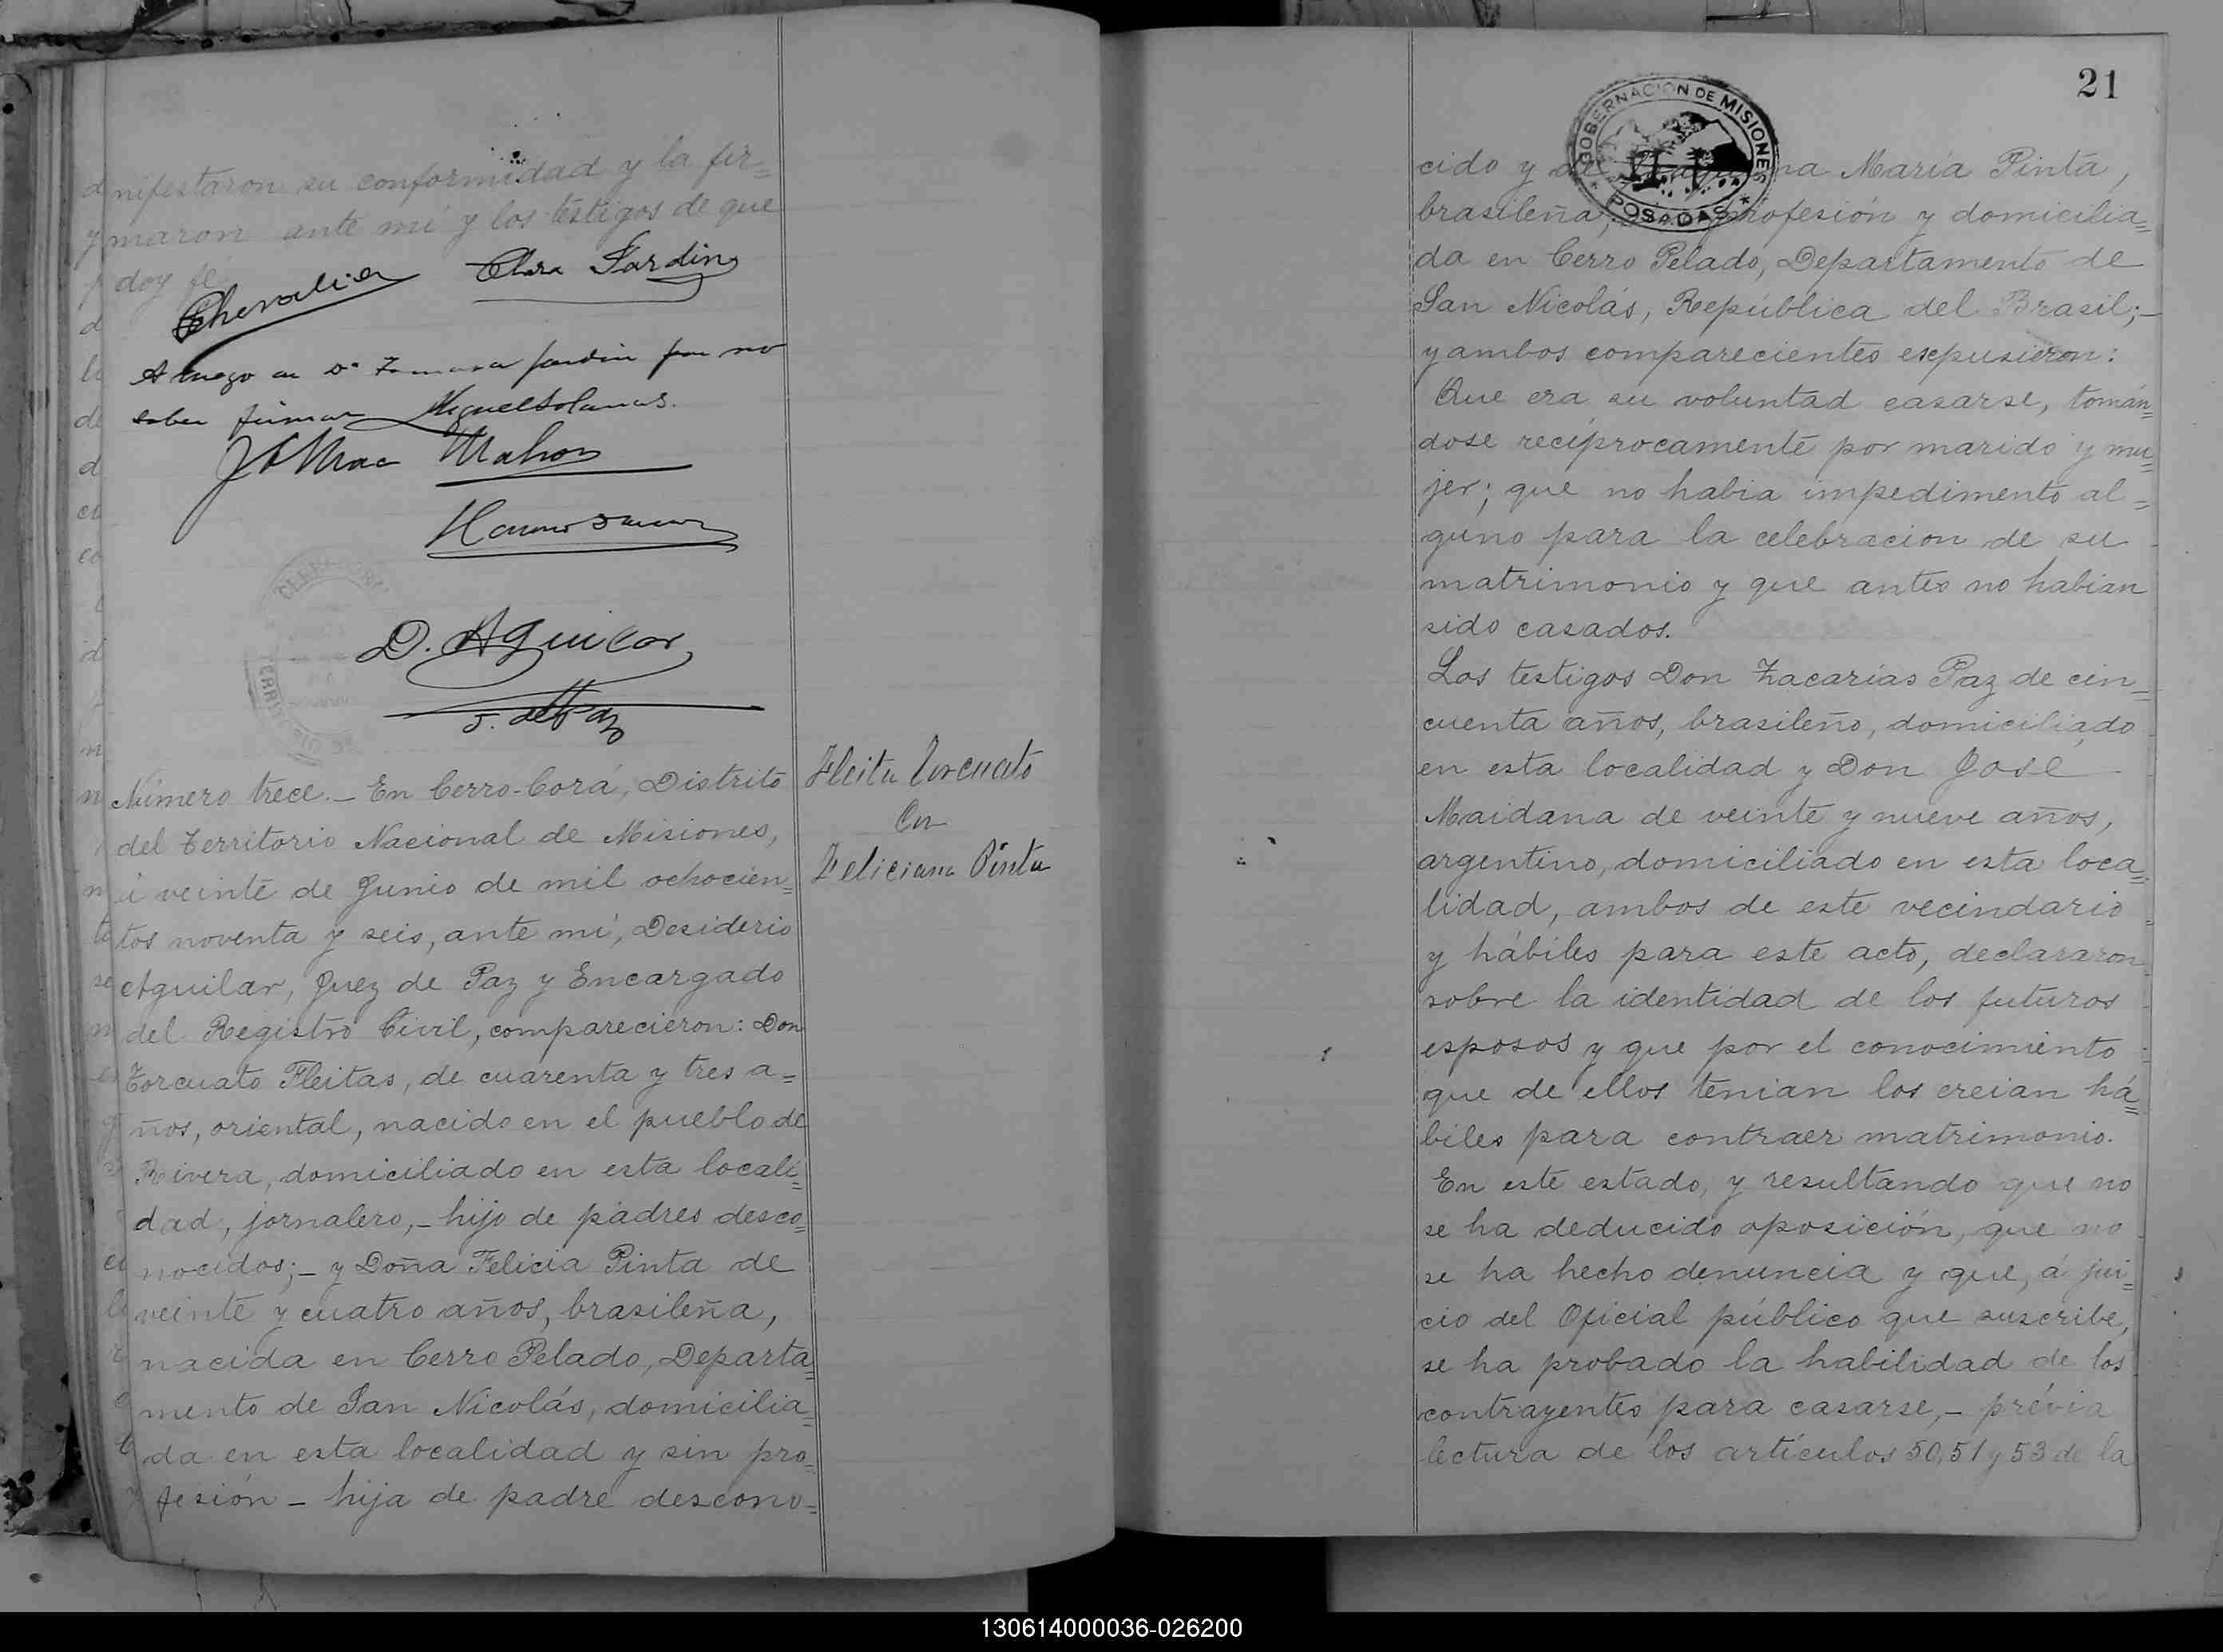 nifestaron su conformidad y la fir=
maron ante mí y los testigos de que
doy fé
Chevalier Clara Jardin
A ruego de Da Tomasa Jardin por no
saber firmar Miguel Solanas.
J A Mac Mahon
D. Aguilar
Número trece.— En Cerro-Corá, Distrito
del Territorio Nacional de Misiones,
á veinte de Junio de mil ochocien=
tos noventa y seis, ante mí, Desiderio
Aguilar, Juez de Paz y Encargado
del Registro Civil, comparecieron: Don
Torcuato Fleitas, de cuarenta y tres a=
ños, oriental, nacido en el pueblo de
Rivera, domiciliado en esta locali=
dad, jornalero,— hijo de padres desco=
nocidos;— y Doña Felicia Pinta de
veinte y cuatro años, brasileña,
nacida en Cerro Pelado, Departa=
mento de San Nicolás, domicilia=
da en esta localidad y sin pro=
fesión — hija de padre descono=
Fleita Torcuato
Con
Feliciana Pinta
21
GOBERNACION DE MISIONES
* POSADAS *
cido y de María Pinta,
brasileña, profesión y domicilia=
da en Cerro Pelado, Departamento de
San Nicolás, República del Brasil;—
y ambos comparecientes expusieron:
Que era su voluntad casarse, tomán=
dose recíprocamente por marido y mu=
jer; que no habia impedimento al=
guno para la celebracion de su
matrimonio y que antes no habian
sido casados.
Los testigos Don Zacarías Paz de cin=
cuenta años, brasileño, domiciliado
en esta localidad y Don José
Maidana de veinte y nueve años,
argentino, domiciliado en esta loca=
lidad, ambos de este vecindario
y hábiles para este acto, declararon
sobre la identidad de los futuros
esposos y que por el conocimiento
que de ellos tenian los creian há=
biles para contraer matrimonio.
En este estado, y resultando que no
se ha deducido oposición, que no
se ha hecho denuncia y que, á jui=
cio del Oficial público que suscribe,
se ha probado la habilidad de los
contrayentes para casarse,— prévia
lectura de los artículos 50, 51 y 53 de la
130614000036-026200